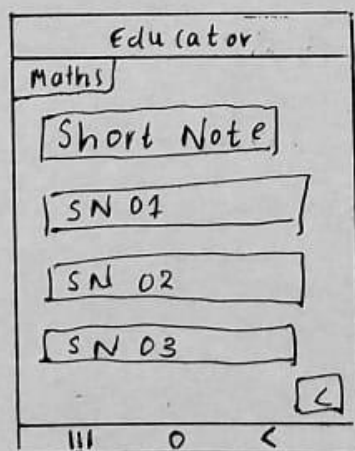 Educator
Maths
Short Note
SN 01
SN 02
SN 03
<
III O <